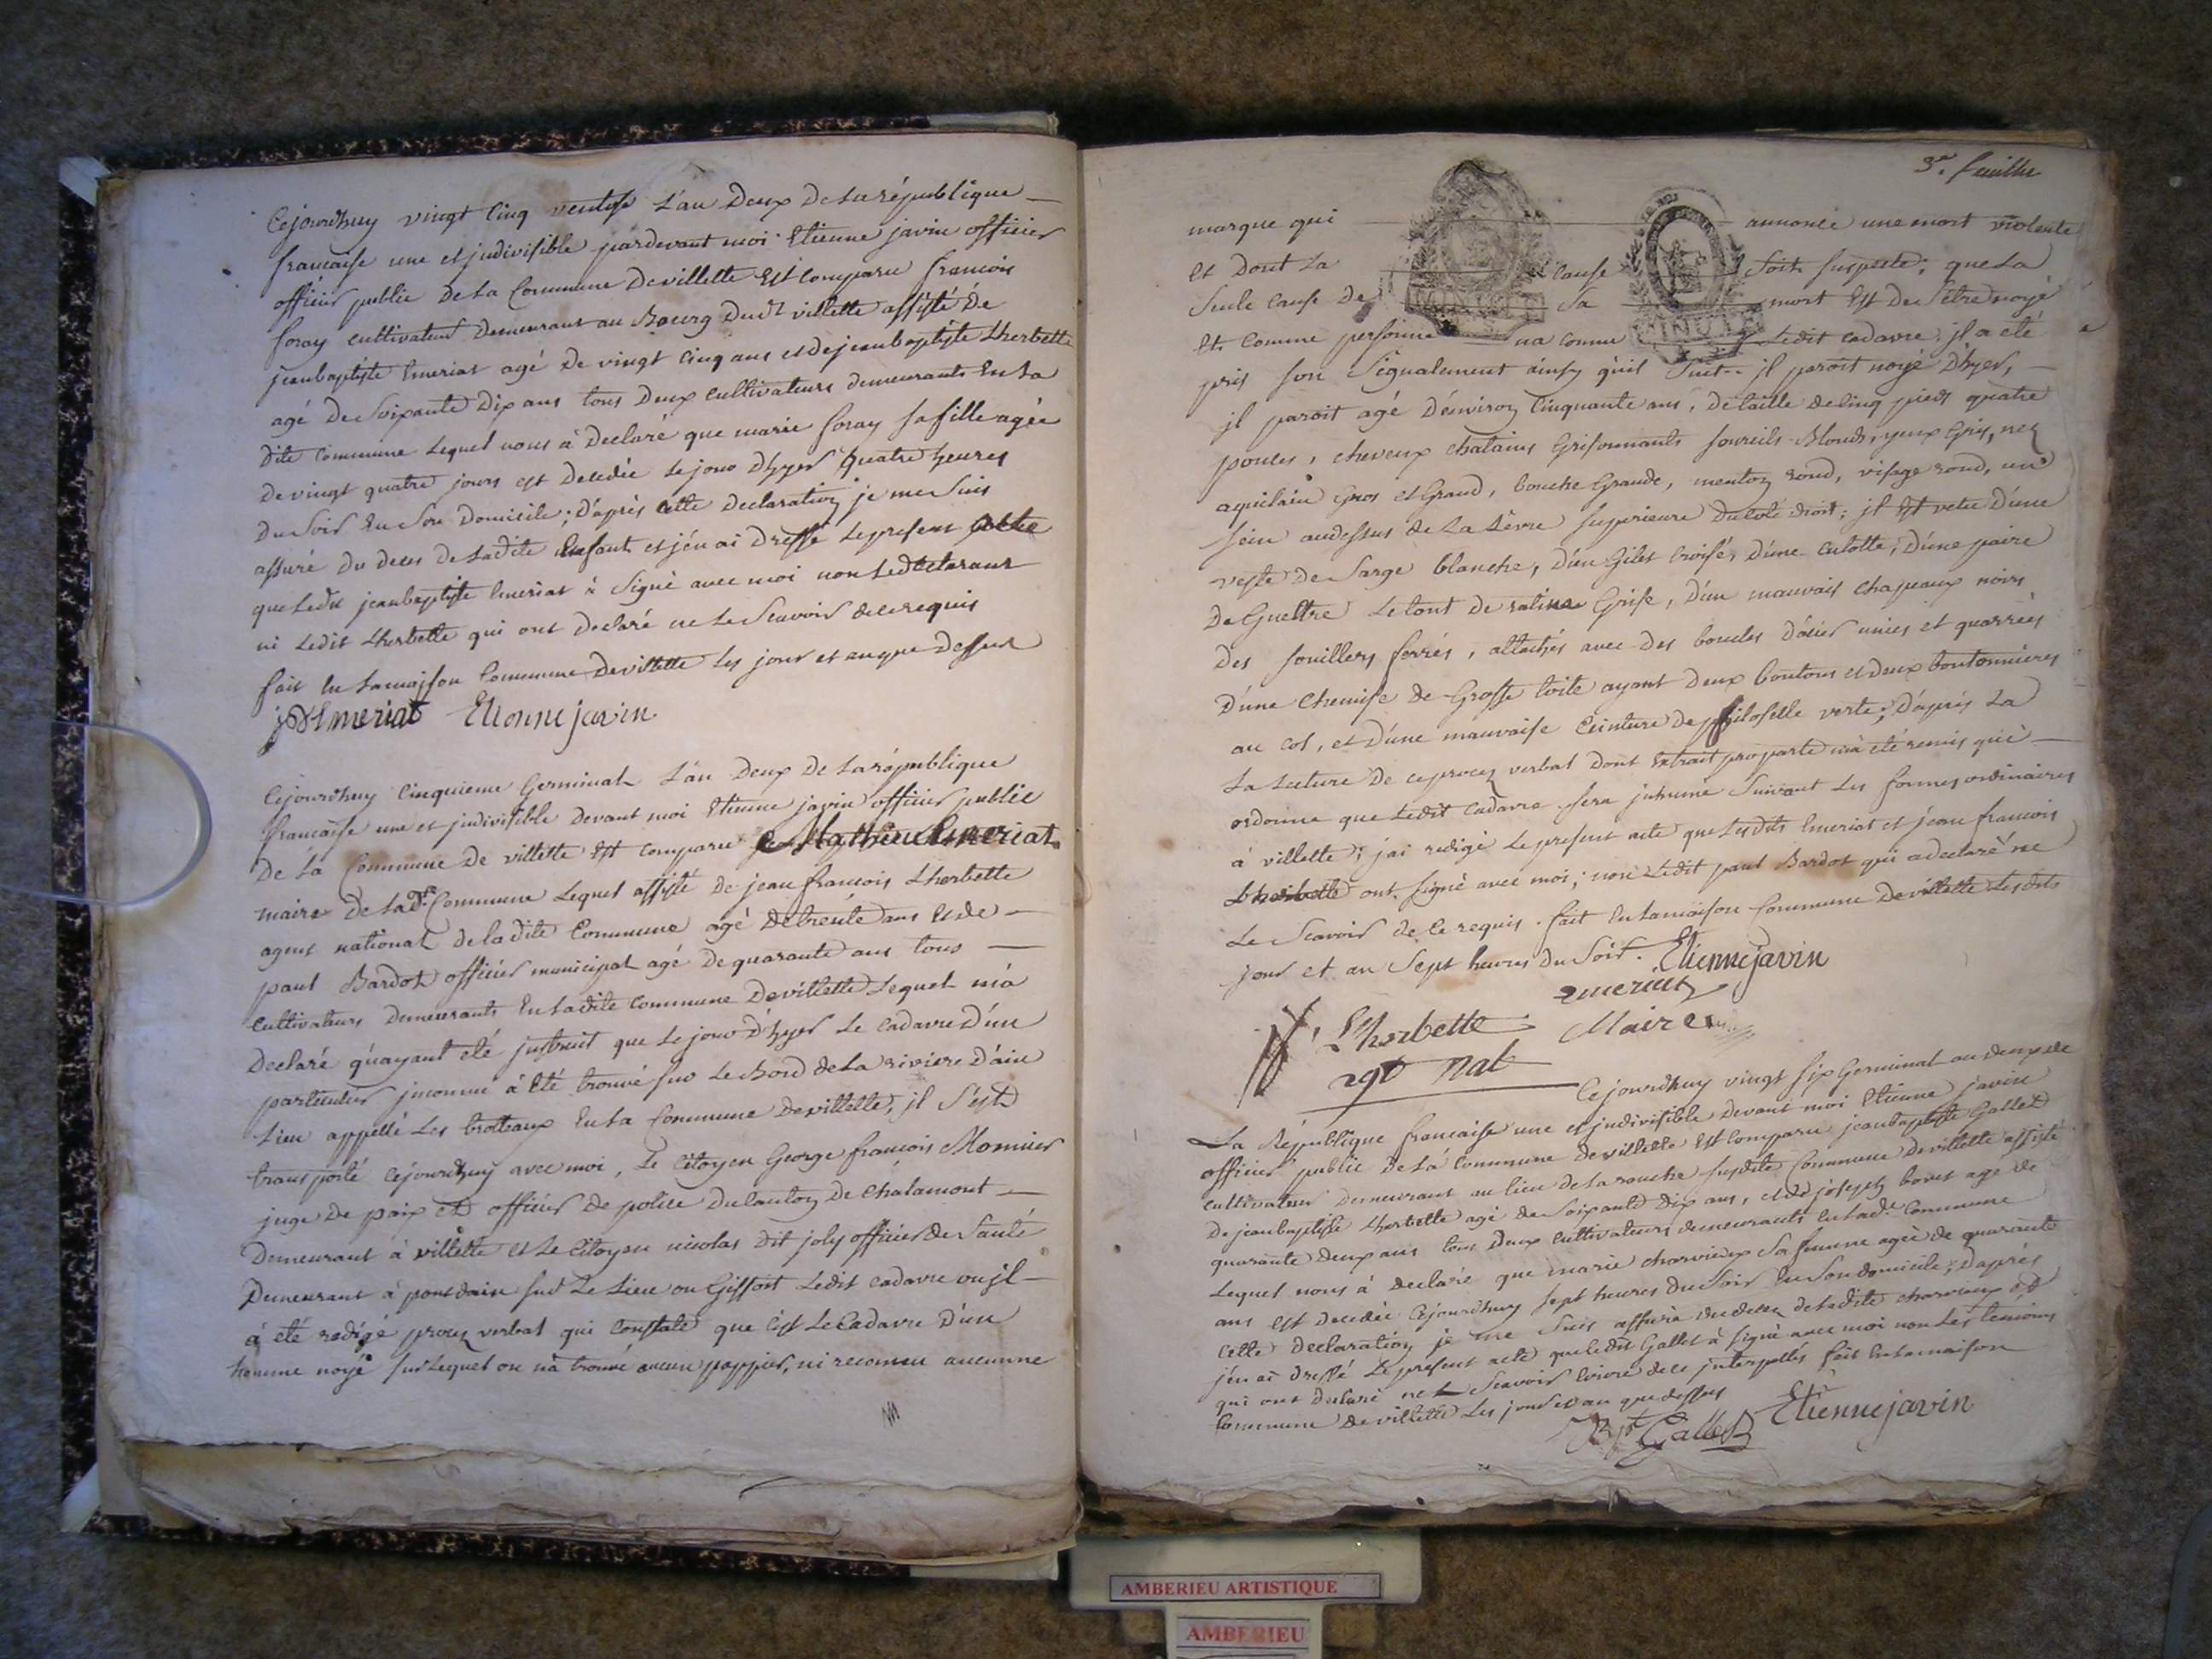 Cejourdhuy vingt Cinq ventose L'an Deux De La république
francaise une et jndivisible pardevant moi Etienne javin officier
officier public De La Commune De villette Est Comparu francois
foray cultivateur Demeurant au Bourg Dudt villette assisté de
jeanbaptiste Emeriat agé De vingt Cinq ans et de jeanbaptiste Lherbette
agé De Soixante Dix ans tous Deux cultivateurs demeurants En La
dite Commune Lequel nous à Declaré que marie foray Sa fille agée
De vingt quatre jours est Decedée Le jour d'hyer quatre heures
Du Soir En Son Domicile; D'aprés cette Declaration je me Suis
assuré du deces De Ladite Enfant et j'en ai Dressé Le present acte
que Ledit jeanbaptiste Emeriat à Signé avec moi non Ledéclarant
ni Ledit Lherbette qui ont Declaré ne Le Scavoir de ce requis
fait En Lamaison Commune De villette Les jour et an que Dessus
jB Emeriat Etienne javin
Cejourdhuy Cinquieme Germinal L'an Deux De La république
francaise une et jndivisible Devant moi Etienne javin officier public
De La Commune De villette Est comparu Mathieu Emeriat
maire De Lade. Commune Lequel assisté de jean francois Lherbette
agent national de la dite Commune agé De trente ans et de
paul Bardot officier municipal agé De quarante ans tous
Cultivateurs Demeurants En Ladite Commune De villette Lequel m'a
Declaré qu'ayant eté jnstruit que Le jour D'hyer Le Cadavre D'un
particulier jnconnu à Eté trouvé sur Le Bord de La riviere D'ain
Lieu appellé Les brotteaux En La Commune De villette, jl S'est
transporté Cejourdhuy avec moi, Le Citoyen George francois Monnier
juge De paix et officier De police Du Canton De Chalamont
Demeurant à villette et Le Citoyen nicolas dit joly officier de Santé
Demeurant à pont dain sur Le Lieu ou Gissoit Ledit cadavre ou jl
à eté redigé procez verbal qui Constate que C'est Le Cadavre D'un
homme noyé sur Lequel on n'a trouvé aucun pappier, ni reconnu aucunne
3e. feuille
marque qui annonce une mort violente
Et Dont La Cause Soit suspecte; que La
Seule Cause de Sa mort Est de S'etre noyé
Et Comme personne na connu Ledit cadavre jl a eté
pris son Signalement ainsy qu'il Suit. jl paroit noyé D'hyer,
jl paroit agé D'environ Cinquante ans, de taille de Cinq pieds quatre
pouces, cheveux chatains Grisonnants sourcils Blonds, yeux Gris, nez
aquilain Gros et Grand, bouche Grande, menton rond, visage rond, un
sein audessus de La Lèvre superieure Du coté droit; jl Est vetu D'une
veste De Sarge blanche, D'un Gilet croisé, D'une culotte, D'une paire
De Guettre Le tout de ratine Grise, D'un mauvais Chapeaux noirs
Des souillers ferrés, attachés avec des boucles D'acier unies et quarrées
D'une Chemise de Grosse toile ayant deux boutons et deux boutonnieres
au Col, et D'une mauvaise Ceinture De philoselle verte; D'aprés La
La Lecture De ce procez verbal Dont Extrait proparte m'a eté remis qui
ordonne que Ledit cadavre sera jnhumé Suivant Les formes ordinaires
à villette; jai redigé Le present acte que Lesdits Emeriat et jean francois
Lherbette ont signé avec moi; non Ledit paul Bardot qui a declaré ne
Le Scavoir de Ce requis. fait En Lamaison Commune De villette Lesdits
jour et an Sept heures Du Soir. Etienne javin
emeriat
Lherbette Maire
agt nat
Cejourdhuy vingt six Germinal an deux de
La République francaise une et jndivisible devant moi Etienne javin
officier public de La Commune de villette Est Comparu jeanbaptiste Gallet
Cultivateur Demeurant au lieu de La ranche susdite Commune De villette assisté
De jeanbaptiste Lherbette agé de Soixante Dix ans, et de joseph bovet agé de
quarante deux ans tous Deux Cultivateurs demeurants En Lade. Commune
Lequel nous à declaré que marie charvieux Sa femme agée de quarante
ans est Decedée Cejourdhuy sept heures Du Soir En Son domicile; D'aprés
Cette Declaration je me Suis assuré du deces de Ladite charvieux et
j'en ai Dressé Le present acte que Ledit Gallet à signé avec moi non Les temoins
qui ont Declaré ne Scavoir Ecrire de ce jnterpellés fait En Lamaison
Commune De villette Les jour et an que dessus
Bpt Gallet Etienne javin
AMBERIEU ARTISTIQUE
AMBERIEU